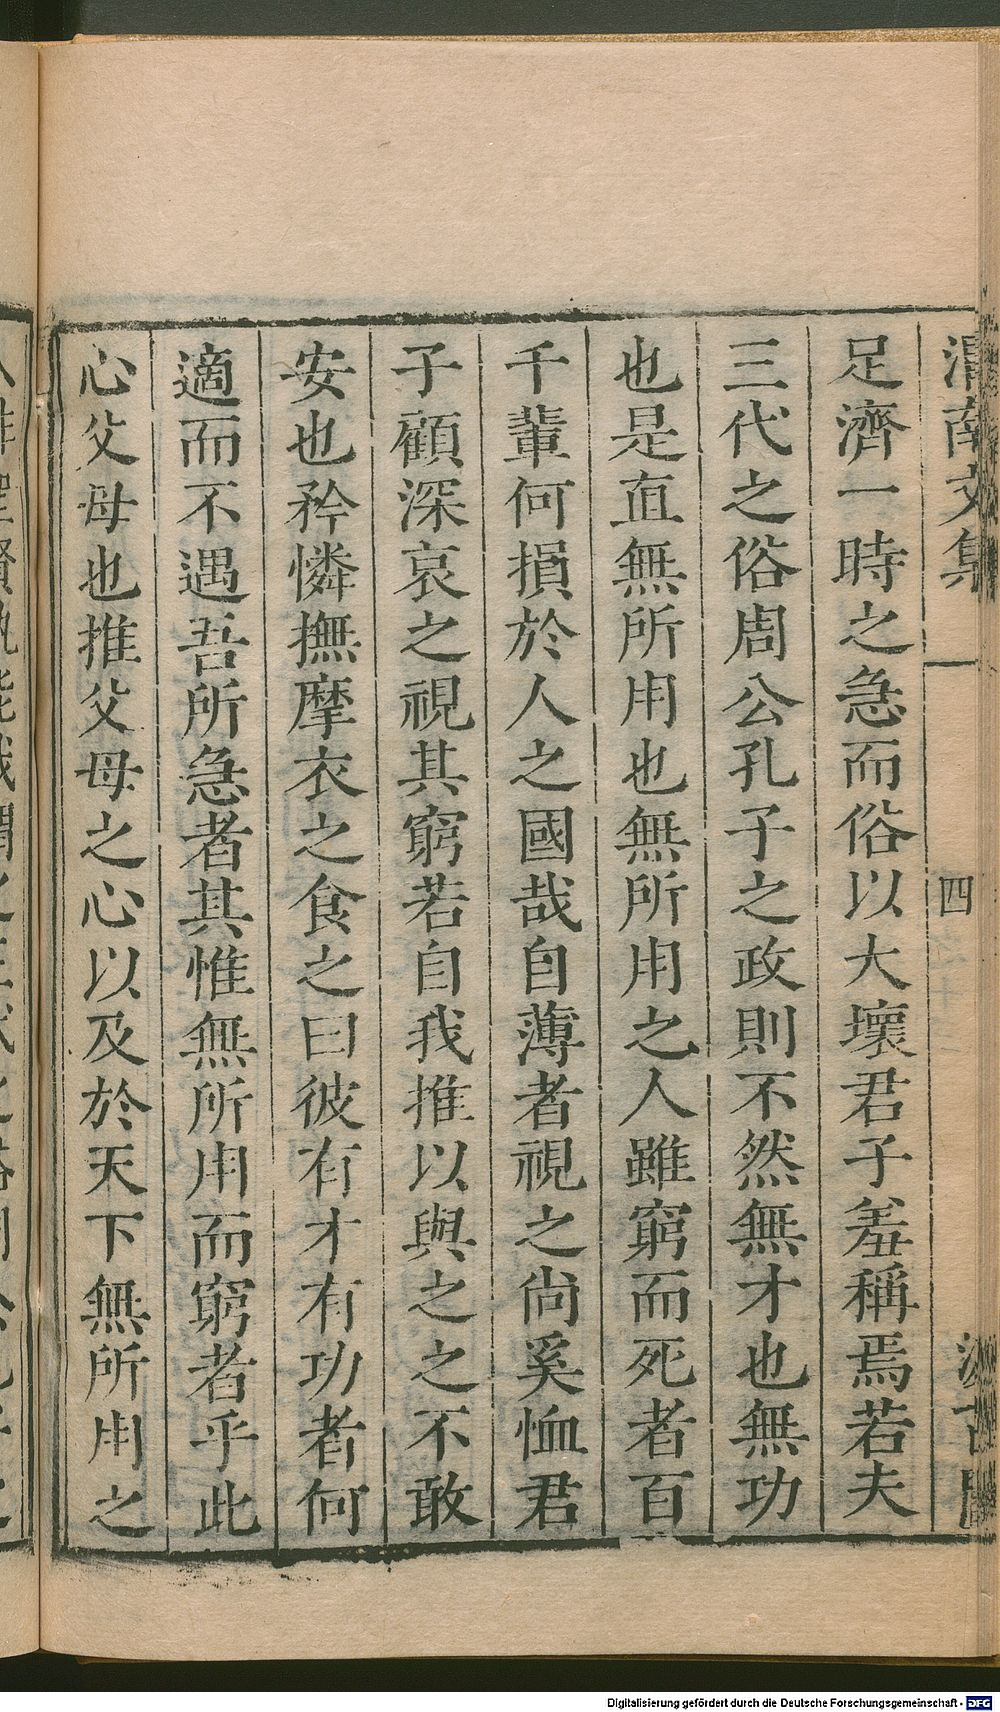 渭南文集
四
汲古閣
足濟一時之急而俗以大壞君子羞稱焉若夫
三代之俗周公孔子之政則不然無才也無功
也是直無所用也無所用之人雖窮而死者百
千輩何損於人之國哉自薄者視之尚奚恤君
子顧深哀之視其窮若自我推以與之之不敢
安也矜憐撫摩衣之食之曰彼有才有功者何
適而不遇吾所急者其惟無所用而窮者乎此
心父母也推父母之心以及於天下無所用之
Digitalisierung gefördert durch die Deutsche Forschungsgemeinschaft - DFG